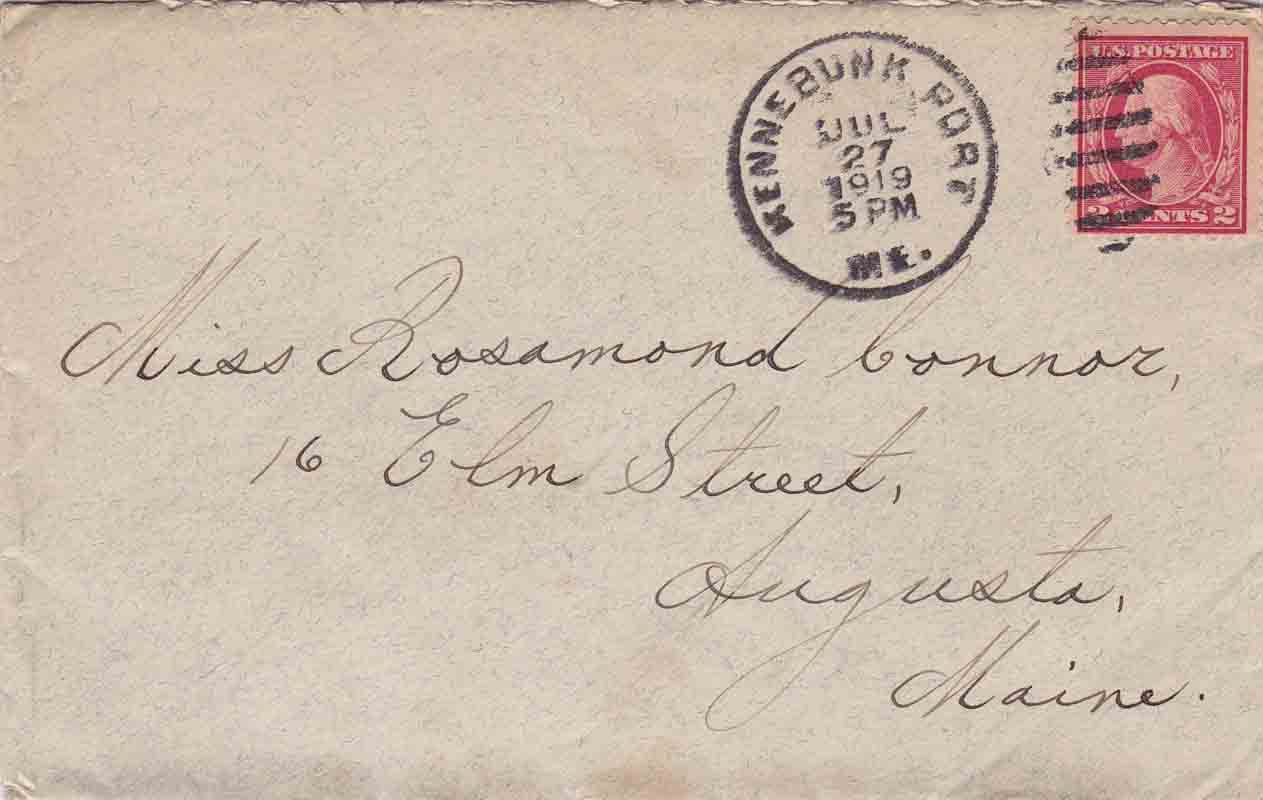 KENNEBUNK PORT
JUL
27
1919
5 PM
ME.
U.S. POSTAGE
2 CENTS 2
Miss Rosamond Connor,
16 Elm Street,
Augusta,
Maine.